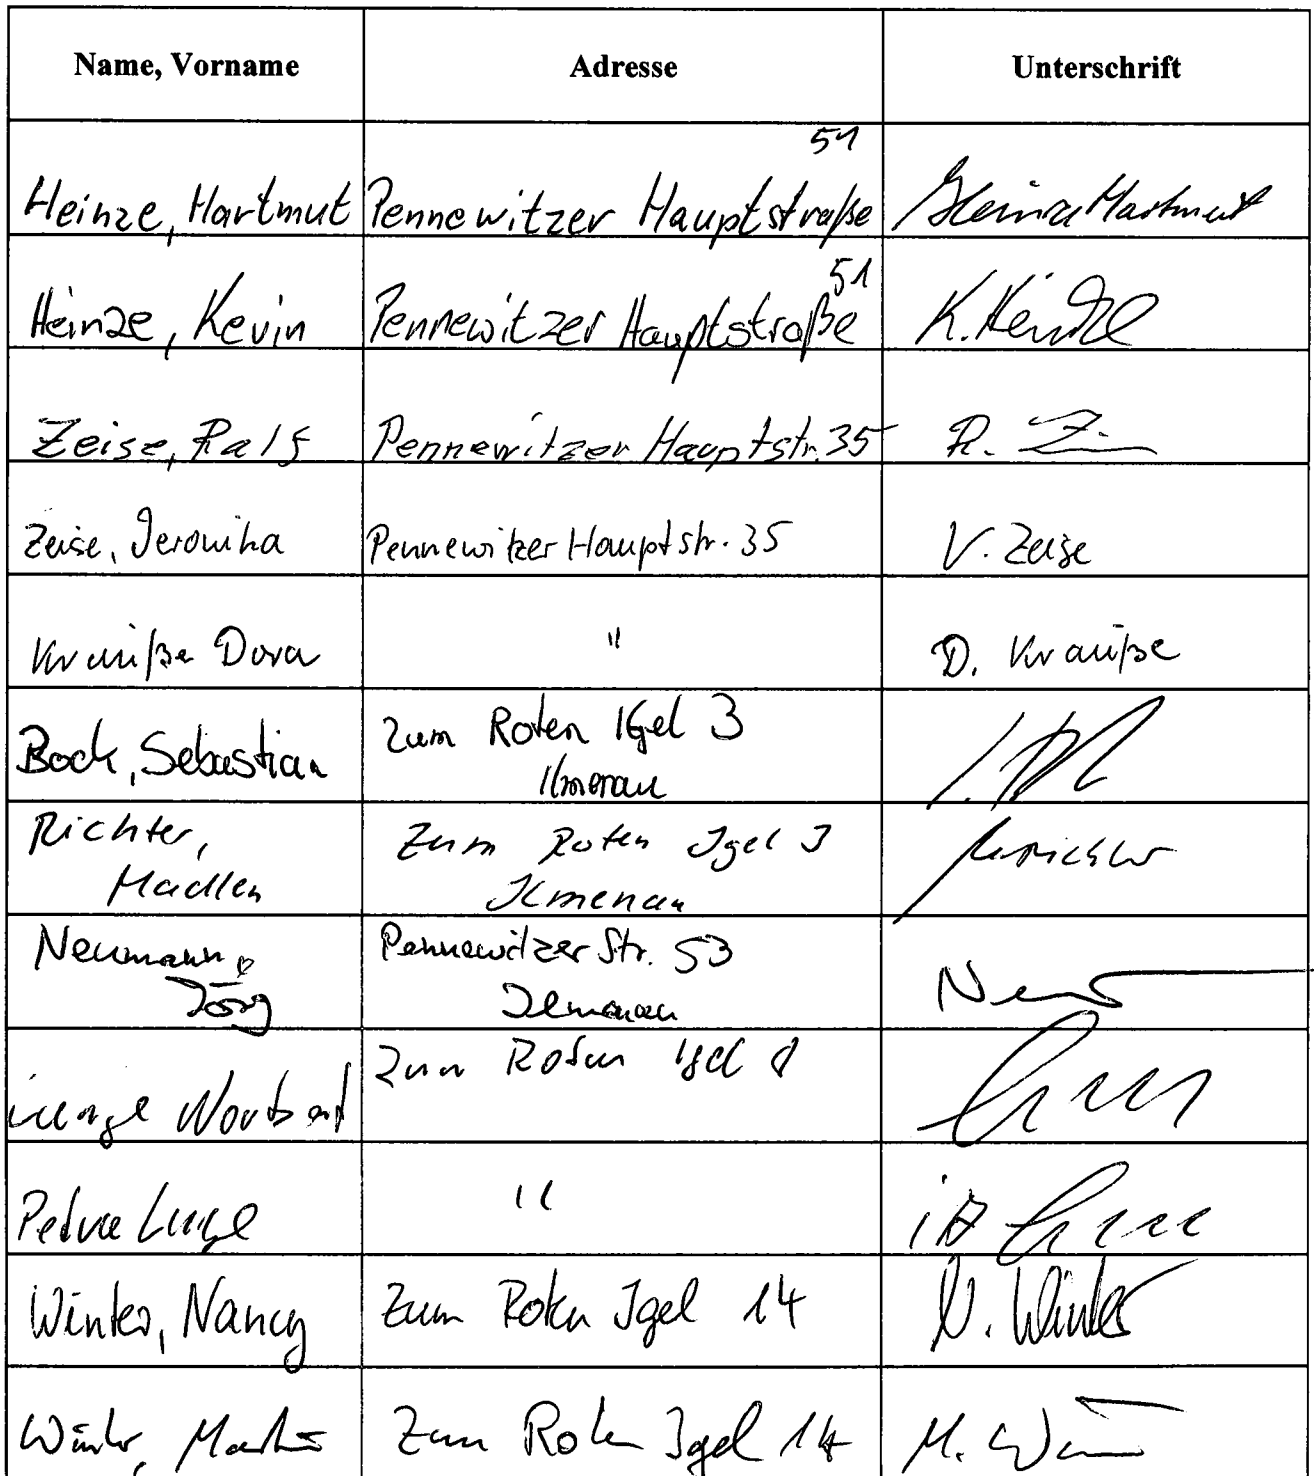 Name, Vorname Adresse Unterschrift
51
Heinze, Hartmut Pennewitzer Hauptstraße Heinze Hartmut
51
Heinze, Kevin Pennewitzer Hauptstraße K. Heinze
Zeise, Ralf Pennewitzer Hauptstr. 35 R.
Zeise, Veronika Pennewitzer Hauptstr. 35 V. Zeise
Krauße Dora " D. Krauße
Bock, Sebastian Zum Roten Igel 3
Ilmenau
Richter, Zum Roten Igel 3
Madlen Ilmenau
Neumann, Pennewitzer Str. 53
Jörg Ilmenau
Zum Roten Igel 8
Petra "
Winter, Nancy Zum Roten Igel 14 N. Winter
Winter, Zum Roten Igel 14 M.